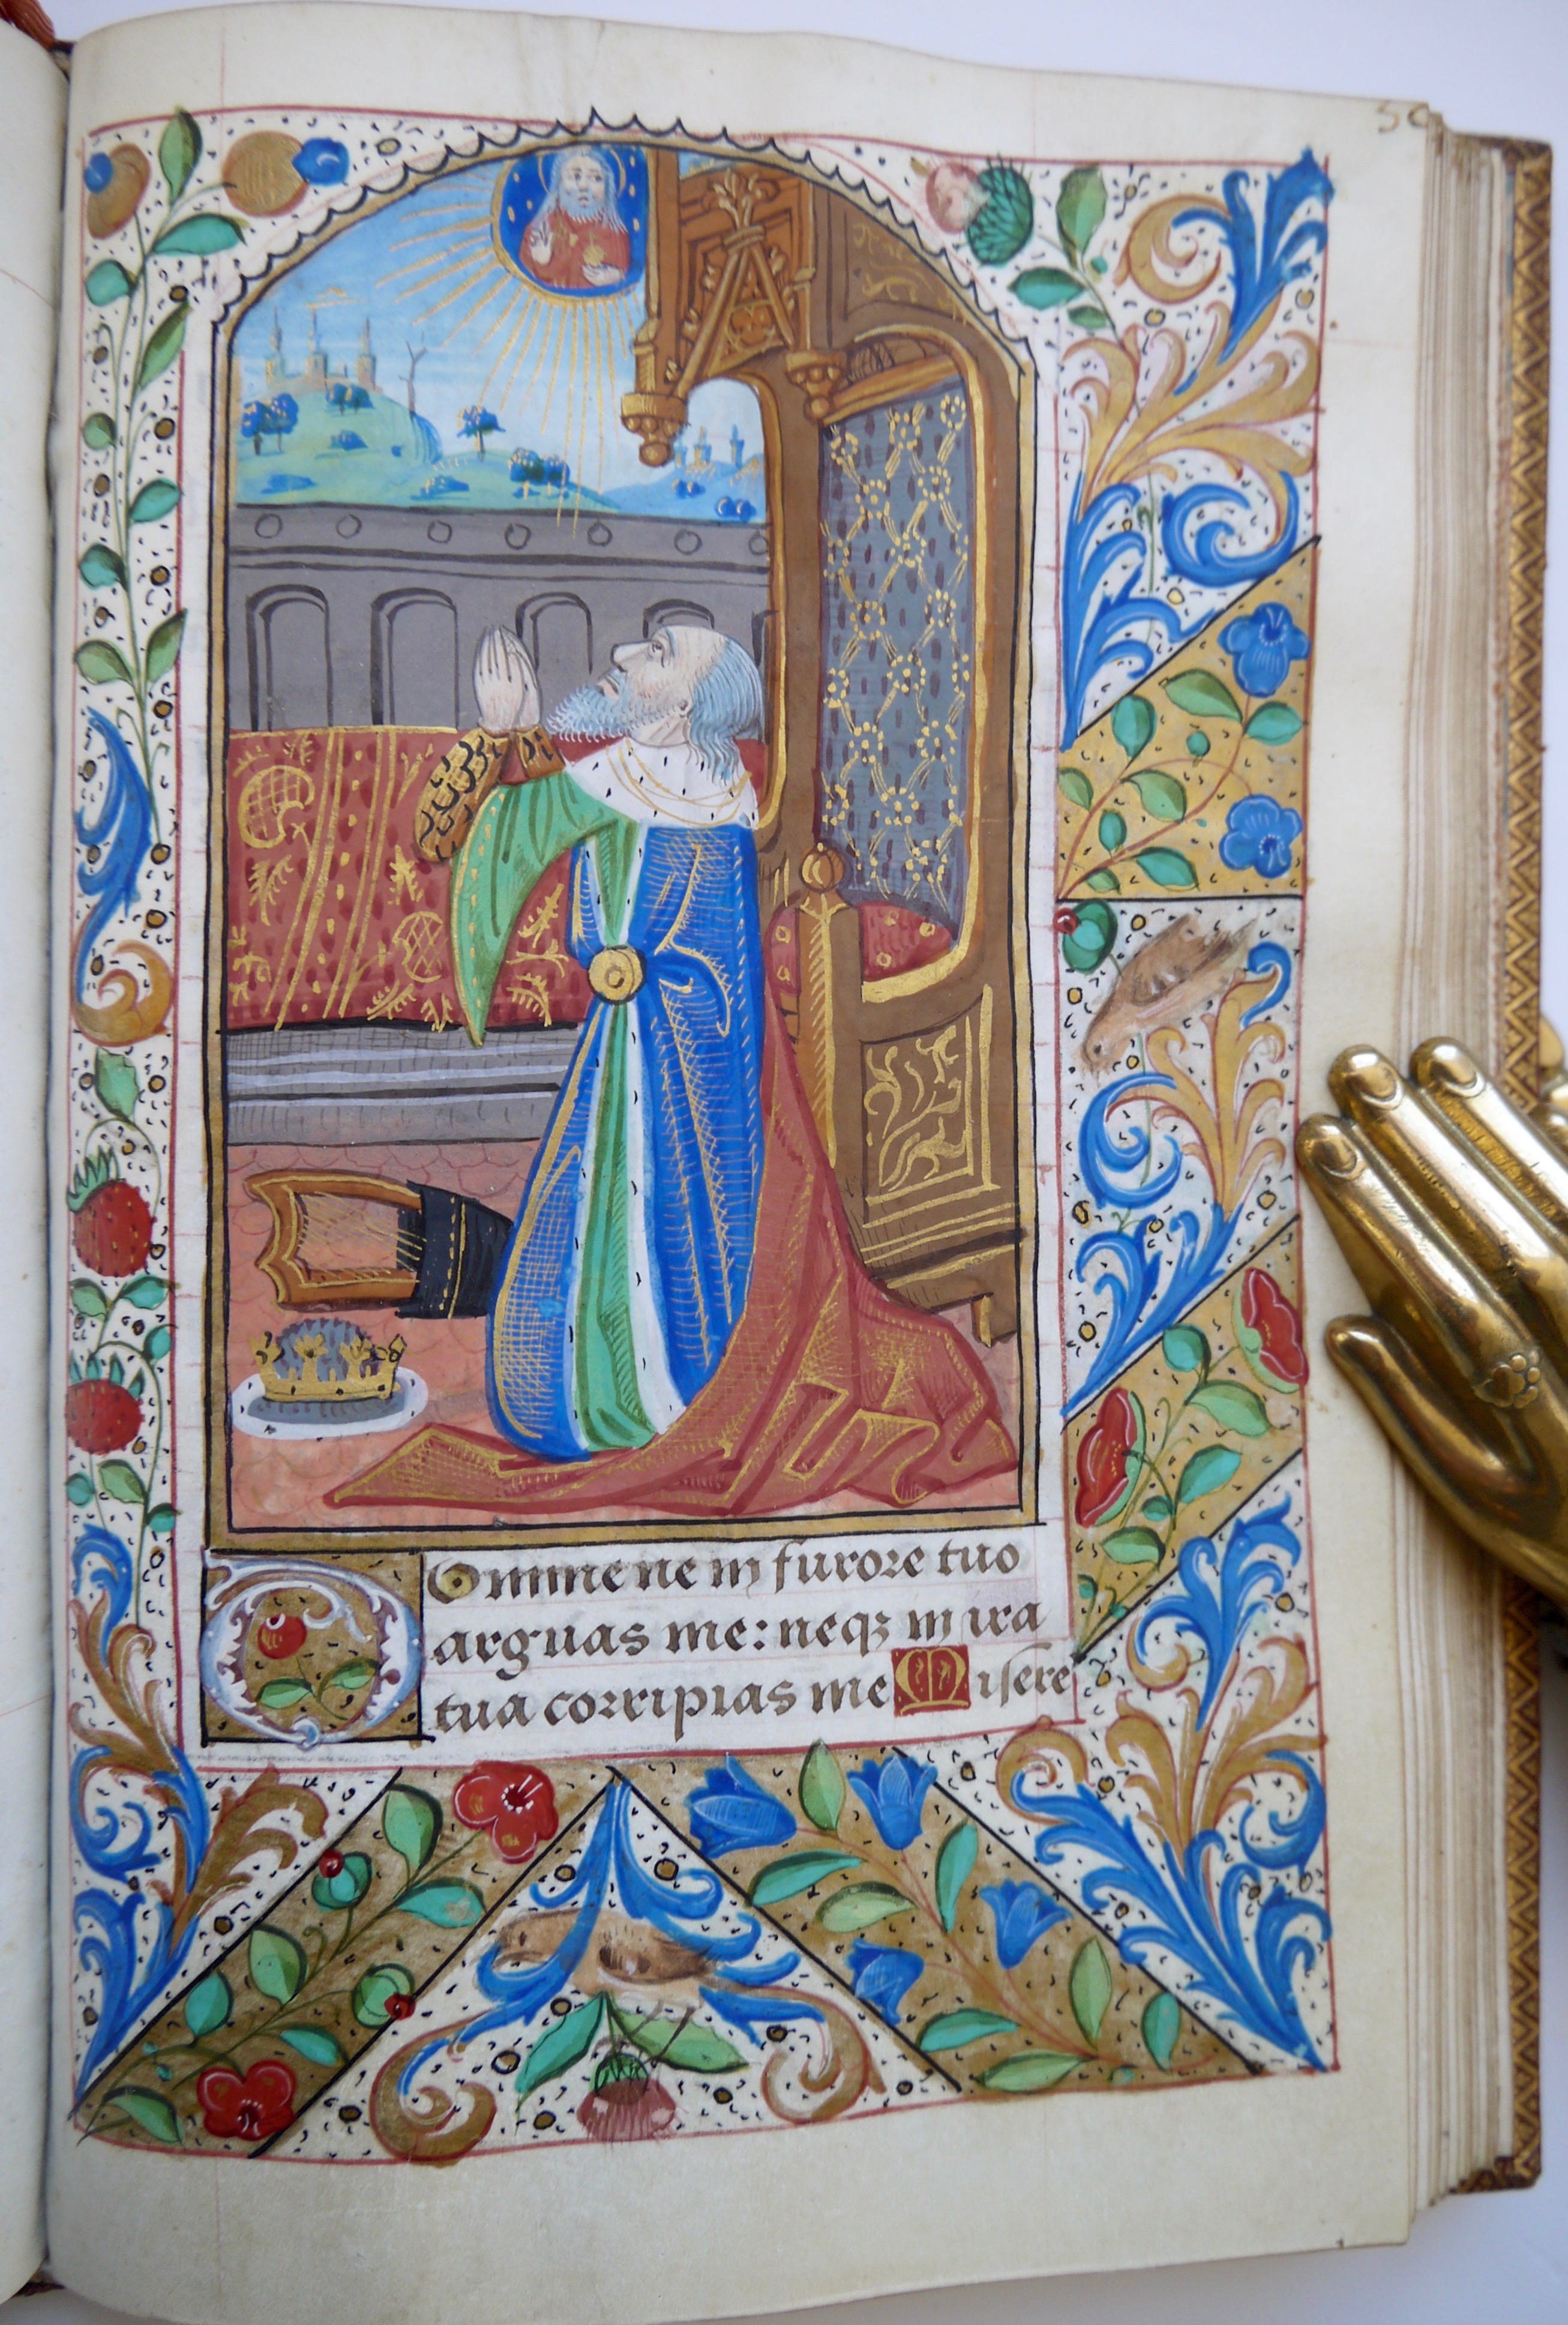 50
Domine ne in furore tuo
arguas me: neqꝫ in ira
tua corripias me Misere